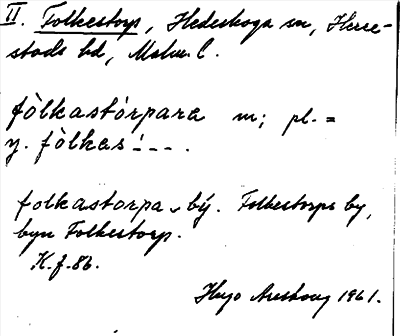 II. Folkestorp, Hedeskoga sn, Herre-
stads hd, Malm. l.
fòlkastórpara m; pl. =
y. fòlkas!---.
folkastorpa-bý. Folkestorps by,
byn Folkestorp.
K. f. 86.
Hugo Areskoug 1961.